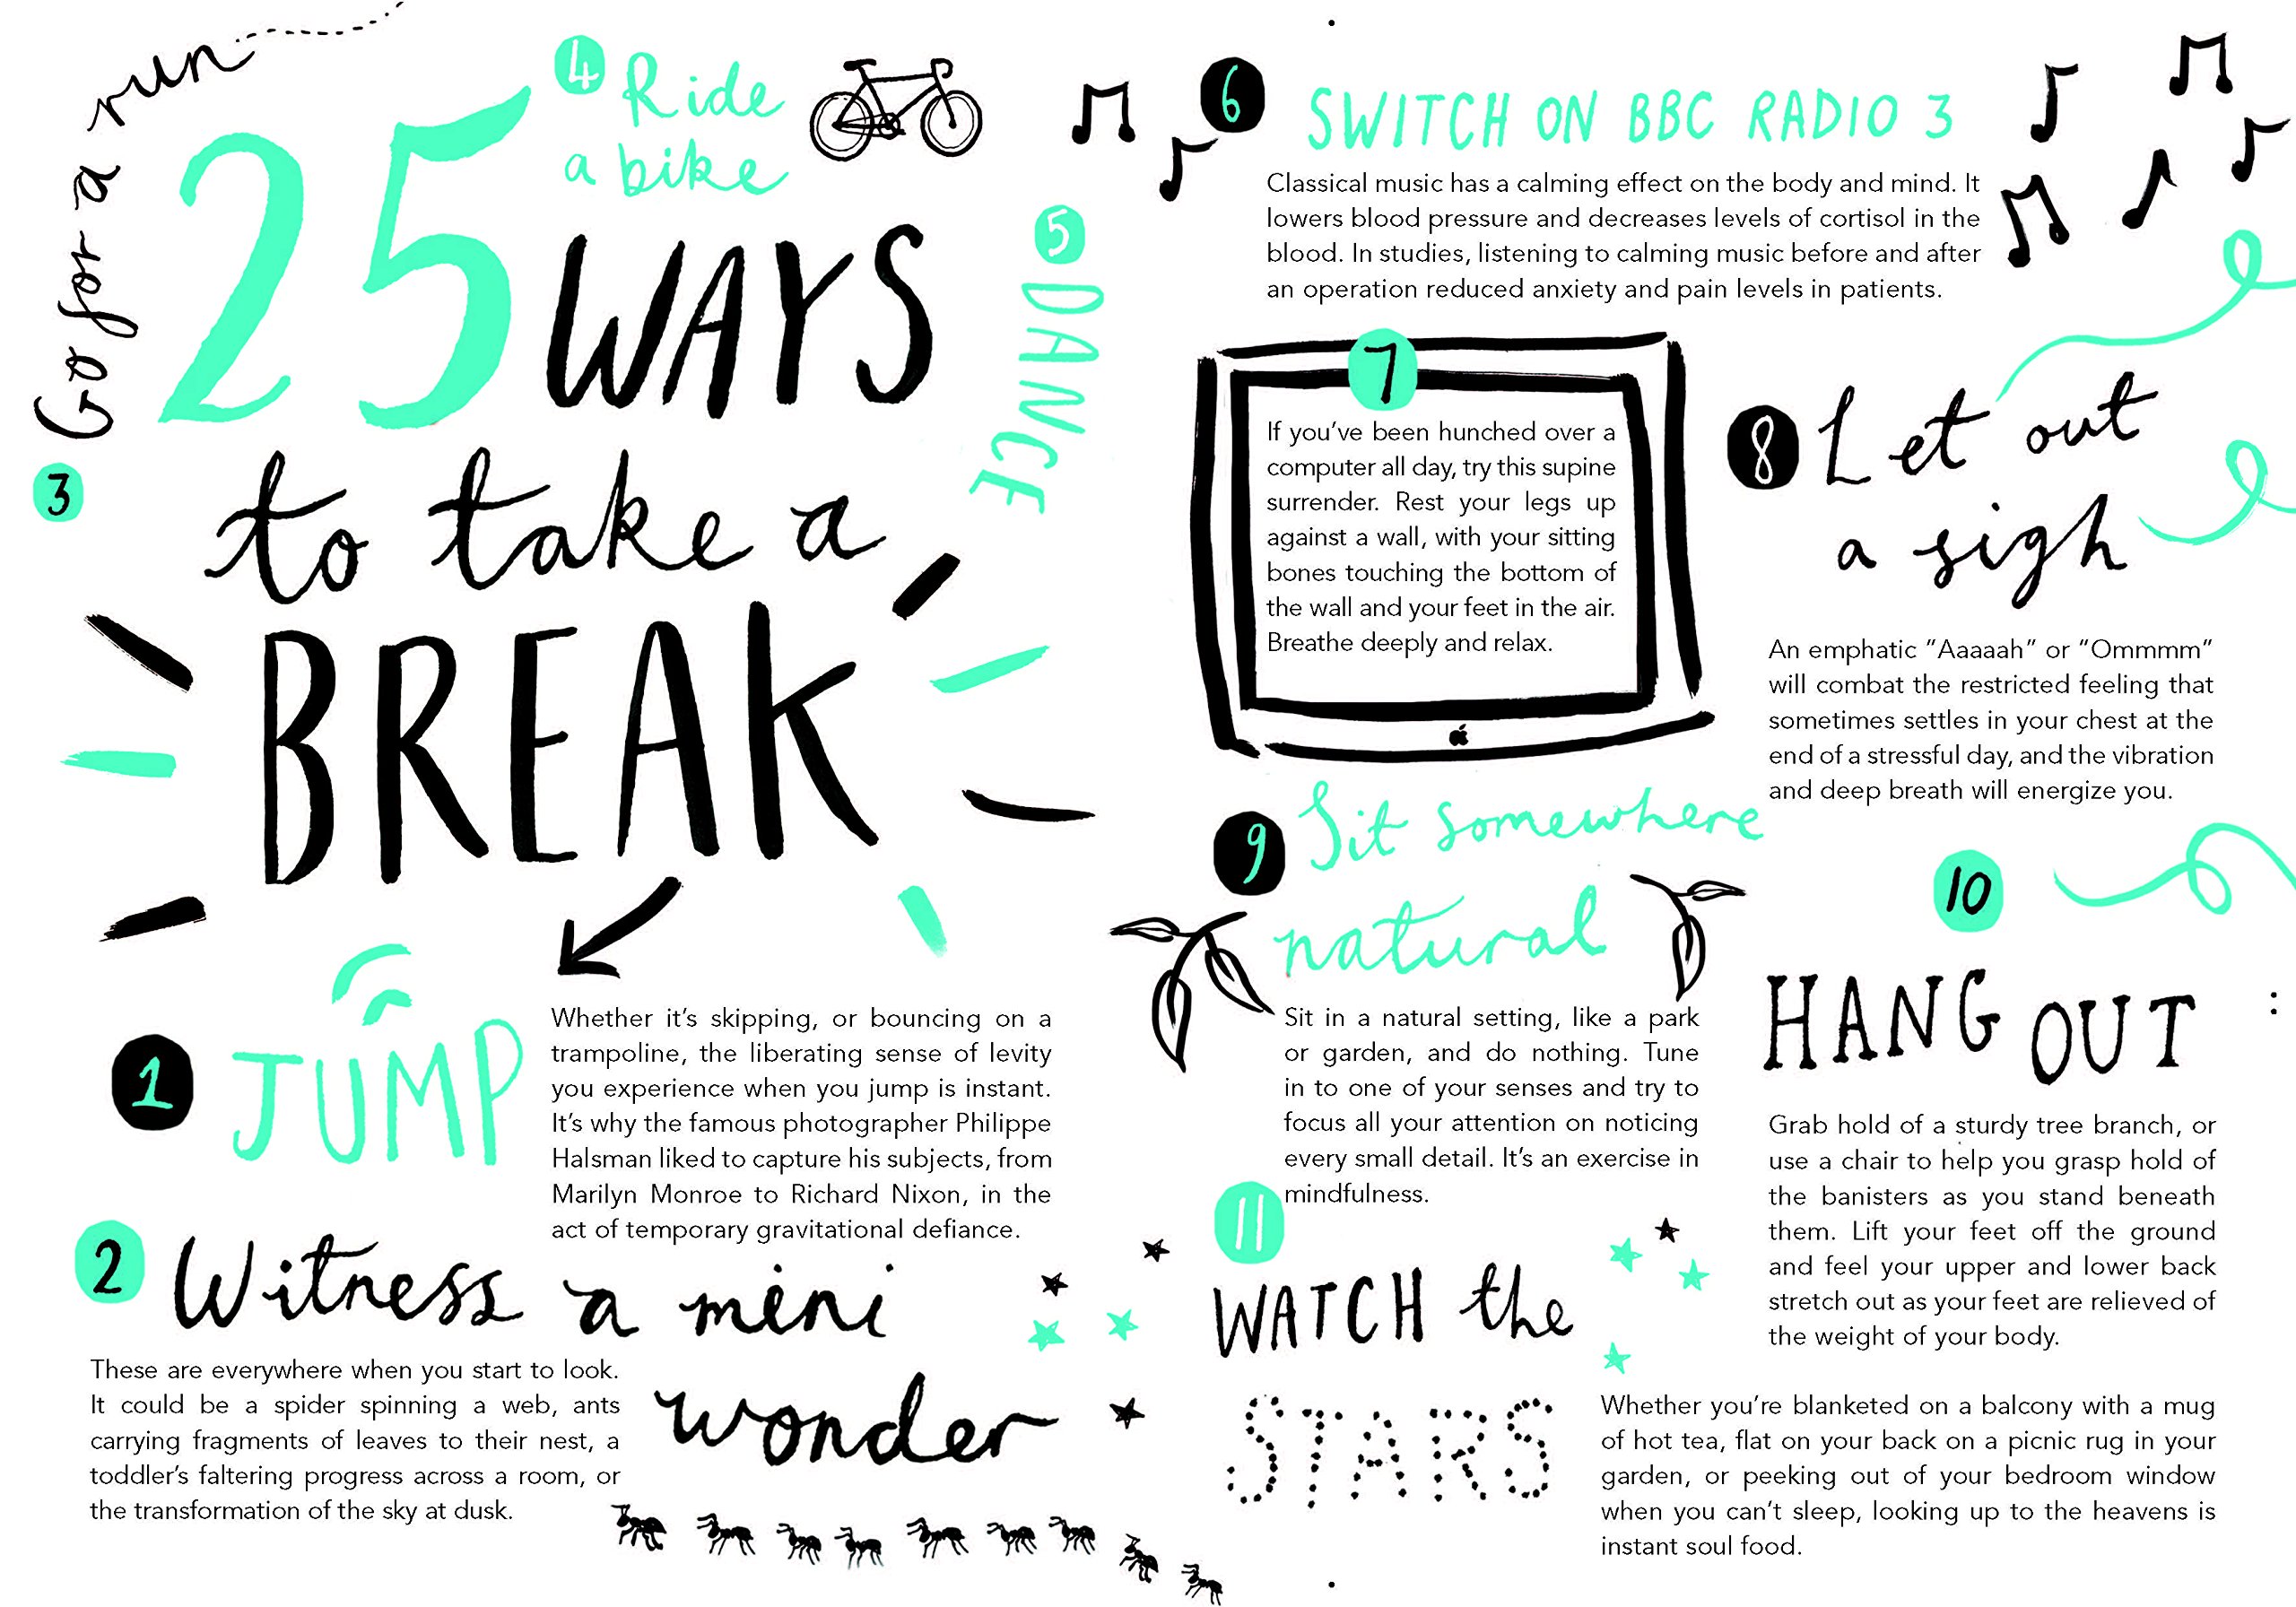 25 WAYS
to take a
BREAK
1
JUMP
Whether it’s skipping, or bouncing on a
trampoline, the liberating sense of levity
you experience when you jump is instant.
It’s why the famous photographer Philippe
Halsman liked to capture his subjects, from
Marilyn Monroe to Richard Nixon, in the
act of temporary gravitational defiance.
2
Witness a mini
wonder
These are everywhere when you start to look.
It could be a spider spinning a web, ants
carrying fragments of leaves to their nest, a
toddler’s faltering progress across a room, or
the transformation of the sky at dusk.
3
Go for a run
4
Ride
a bike
5
DANCE
6
SWITCH ON BBC RADIO 3
Classical music has a calming effect on the body and mind. It
lowers blood pressure and decreases levels of cortisol in the
blood. In studies, listening to calming music before and after
an operation reduced anxiety and pain levels in patients.
7
If you’ve been hunched over a
computer all day, try this supine
surrender. Rest your legs up
against a wall, with your sitting
bones touching the bottom of
the wall and your feet in the air.
Breathe deeply and relax.
8
Let out
a sigh
An emphatic “Aaaaah” or “Ommmm”
will combat the restricted feeling that
sometimes settles in your chest at the
end of a stressful day, and the vibration
and deep breath will energize you.
9
Sit somewhere
natural
Sit in a natural setting, like a park
or garden, and do nothing. Tune
in to one of your senses and try to
focus all your attention on noticing
every small detail. It’s an exercise in
mindfulness.
10
HANG OUT
Grab hold of a sturdy tree branch, or
use a chair to help you grasp hold of
the banisters as you stand beneath
them. Lift your feet off the ground
and feel your upper and lower back
stretch out as your feet are relieved of
the weight of your body.
11
WATCH the
STARS
Whether you’re blanketed on a balcony with a mug
of hot tea, flat on your back on a picnic rug in your
garden, or peeking out of your bedroom window
when you can’t sleep, looking up to the heavens is
instant soul food.